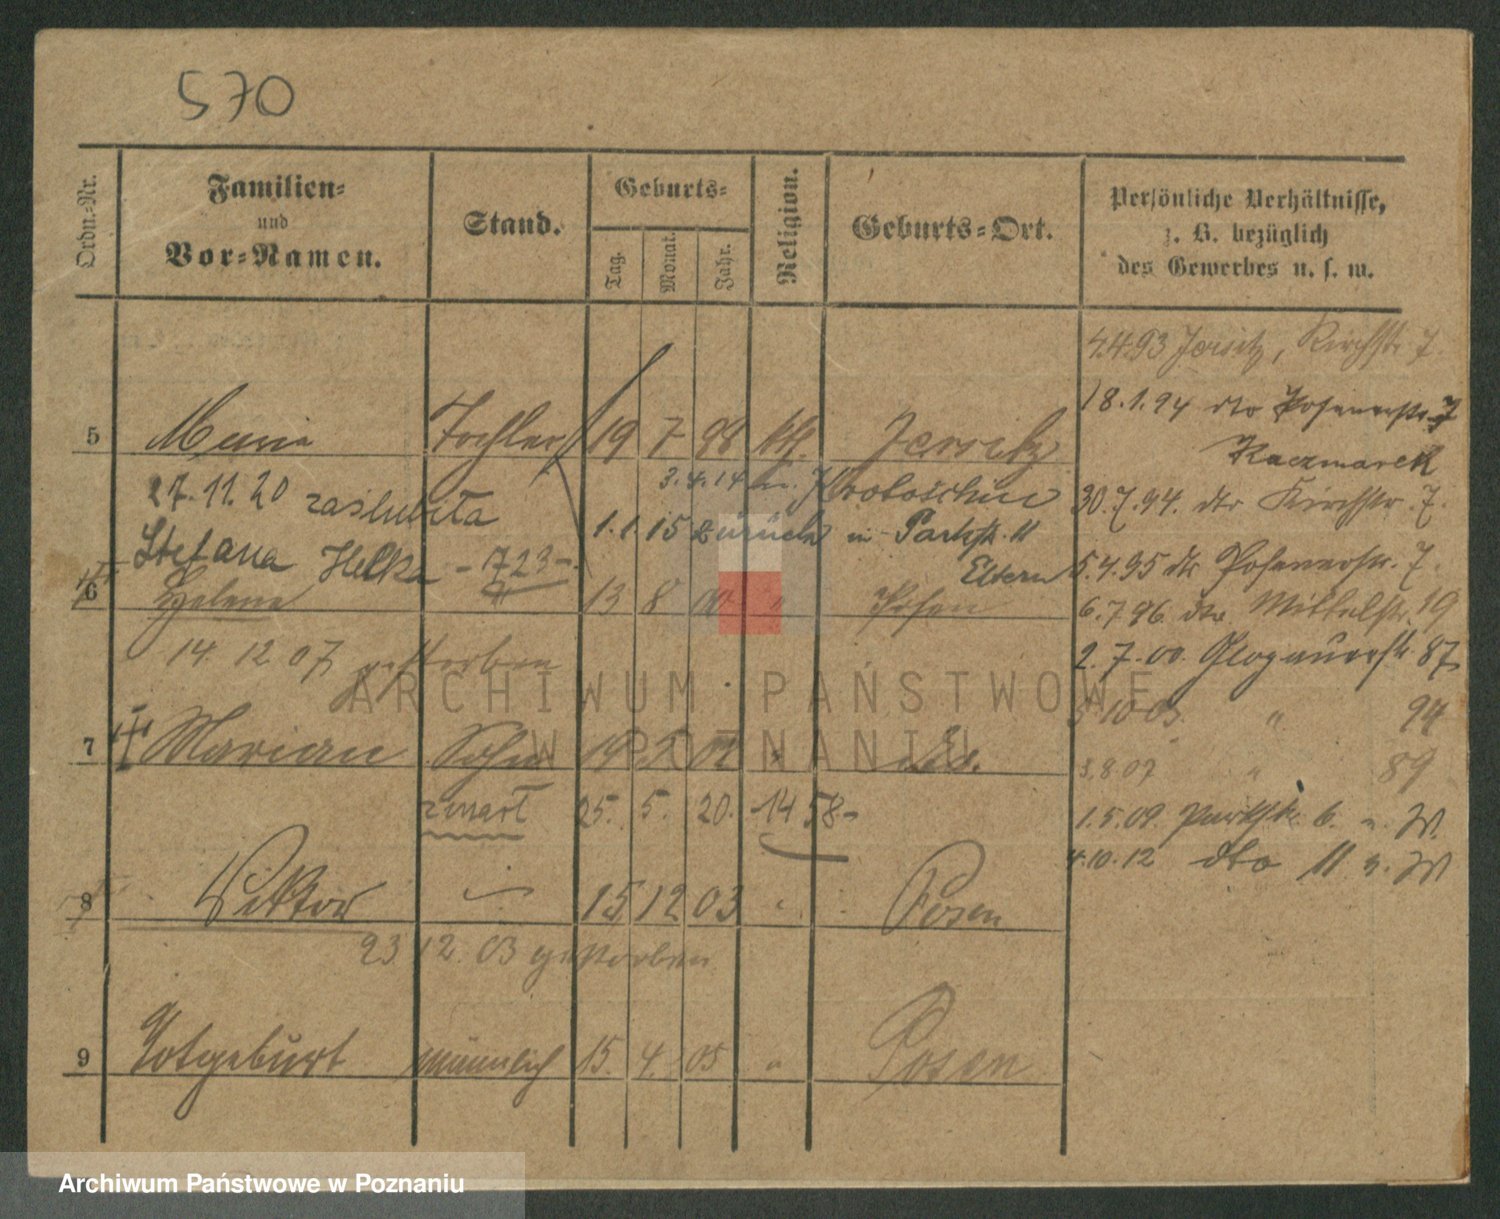 570
Ordn.-Nr.
Familien- und Vor-Namen.
Stand.
Geburts-
Tag.
Monat.
Jahr.
Religion.
Geburts-Ort.
Persönliche Verhältnisse, z. B. bezüglich des Gewerbes u. s. w.
4.4.93 Jersitz, Kirchstr. 7.
18.1.94 dto Posenerstr. 7
Kaczmarek
5 Marie Tochter 19 7 98 kth. Jersitz
27.11.20 zaślubiła
3.4.14 n. Krotoschin
30.7.94. dto Kirchstr. 7.
1.1.15 zurück in Parkstr. 11
Stefana Helka - 1723 -
Eltern
5.4.95 dto Posenerstr. 7.
6 Helene 13 8 00 " Posen
6.7.96. dto Mittelstr. 19
14. 12 07 gestorben
2.7.00. Glogauerstr. 87
3 10 03 " 94
7 Marian Sohn 14 5 02 "
3.8.07 " 89
zmarł 25. 5. 20. -1458-
1.5.09. Parkstr. 6. n. W.
4.10.12 dto 11 n. W
8 Viktor 15 12 03 Posen
23 12. 03 gestorben
9 Totgeburt männlich 15. 4. 05 " Posen
ARCHIWUM PAŃSTWOWE
W POZNANIU
Archiwum Państwowe w Poznaniu